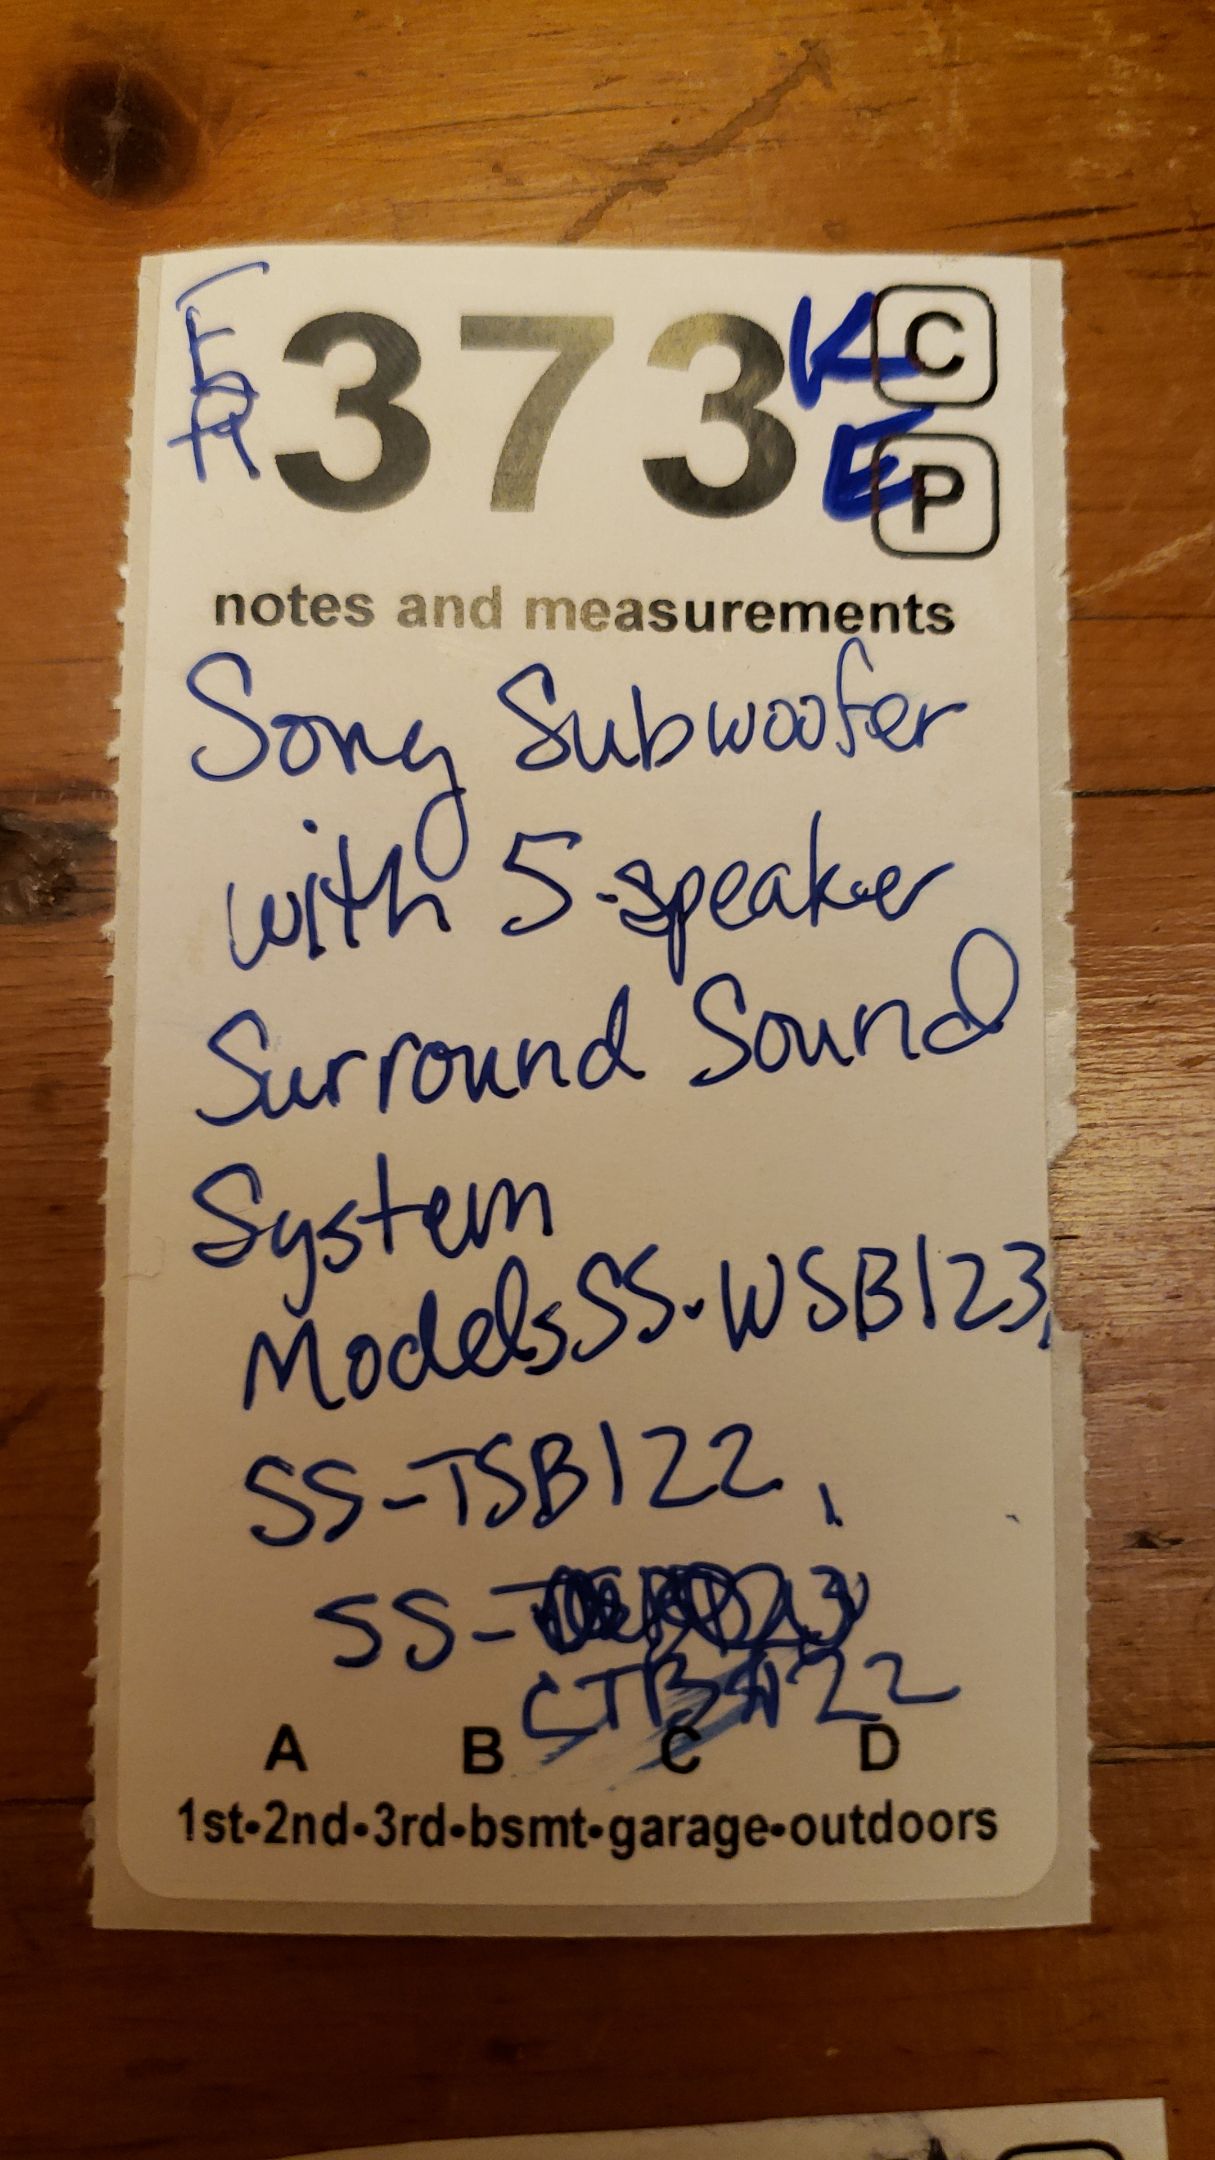 373
K
C
E
P
notes and measurements
Sony Subwoofer
with 5-speaker
Surround Sound
System
Models SS-WSB123,
SS-TSB122,
SS-
CTB122
A B C D
1st•2nd•3rd•bsmt•garage•outdoors